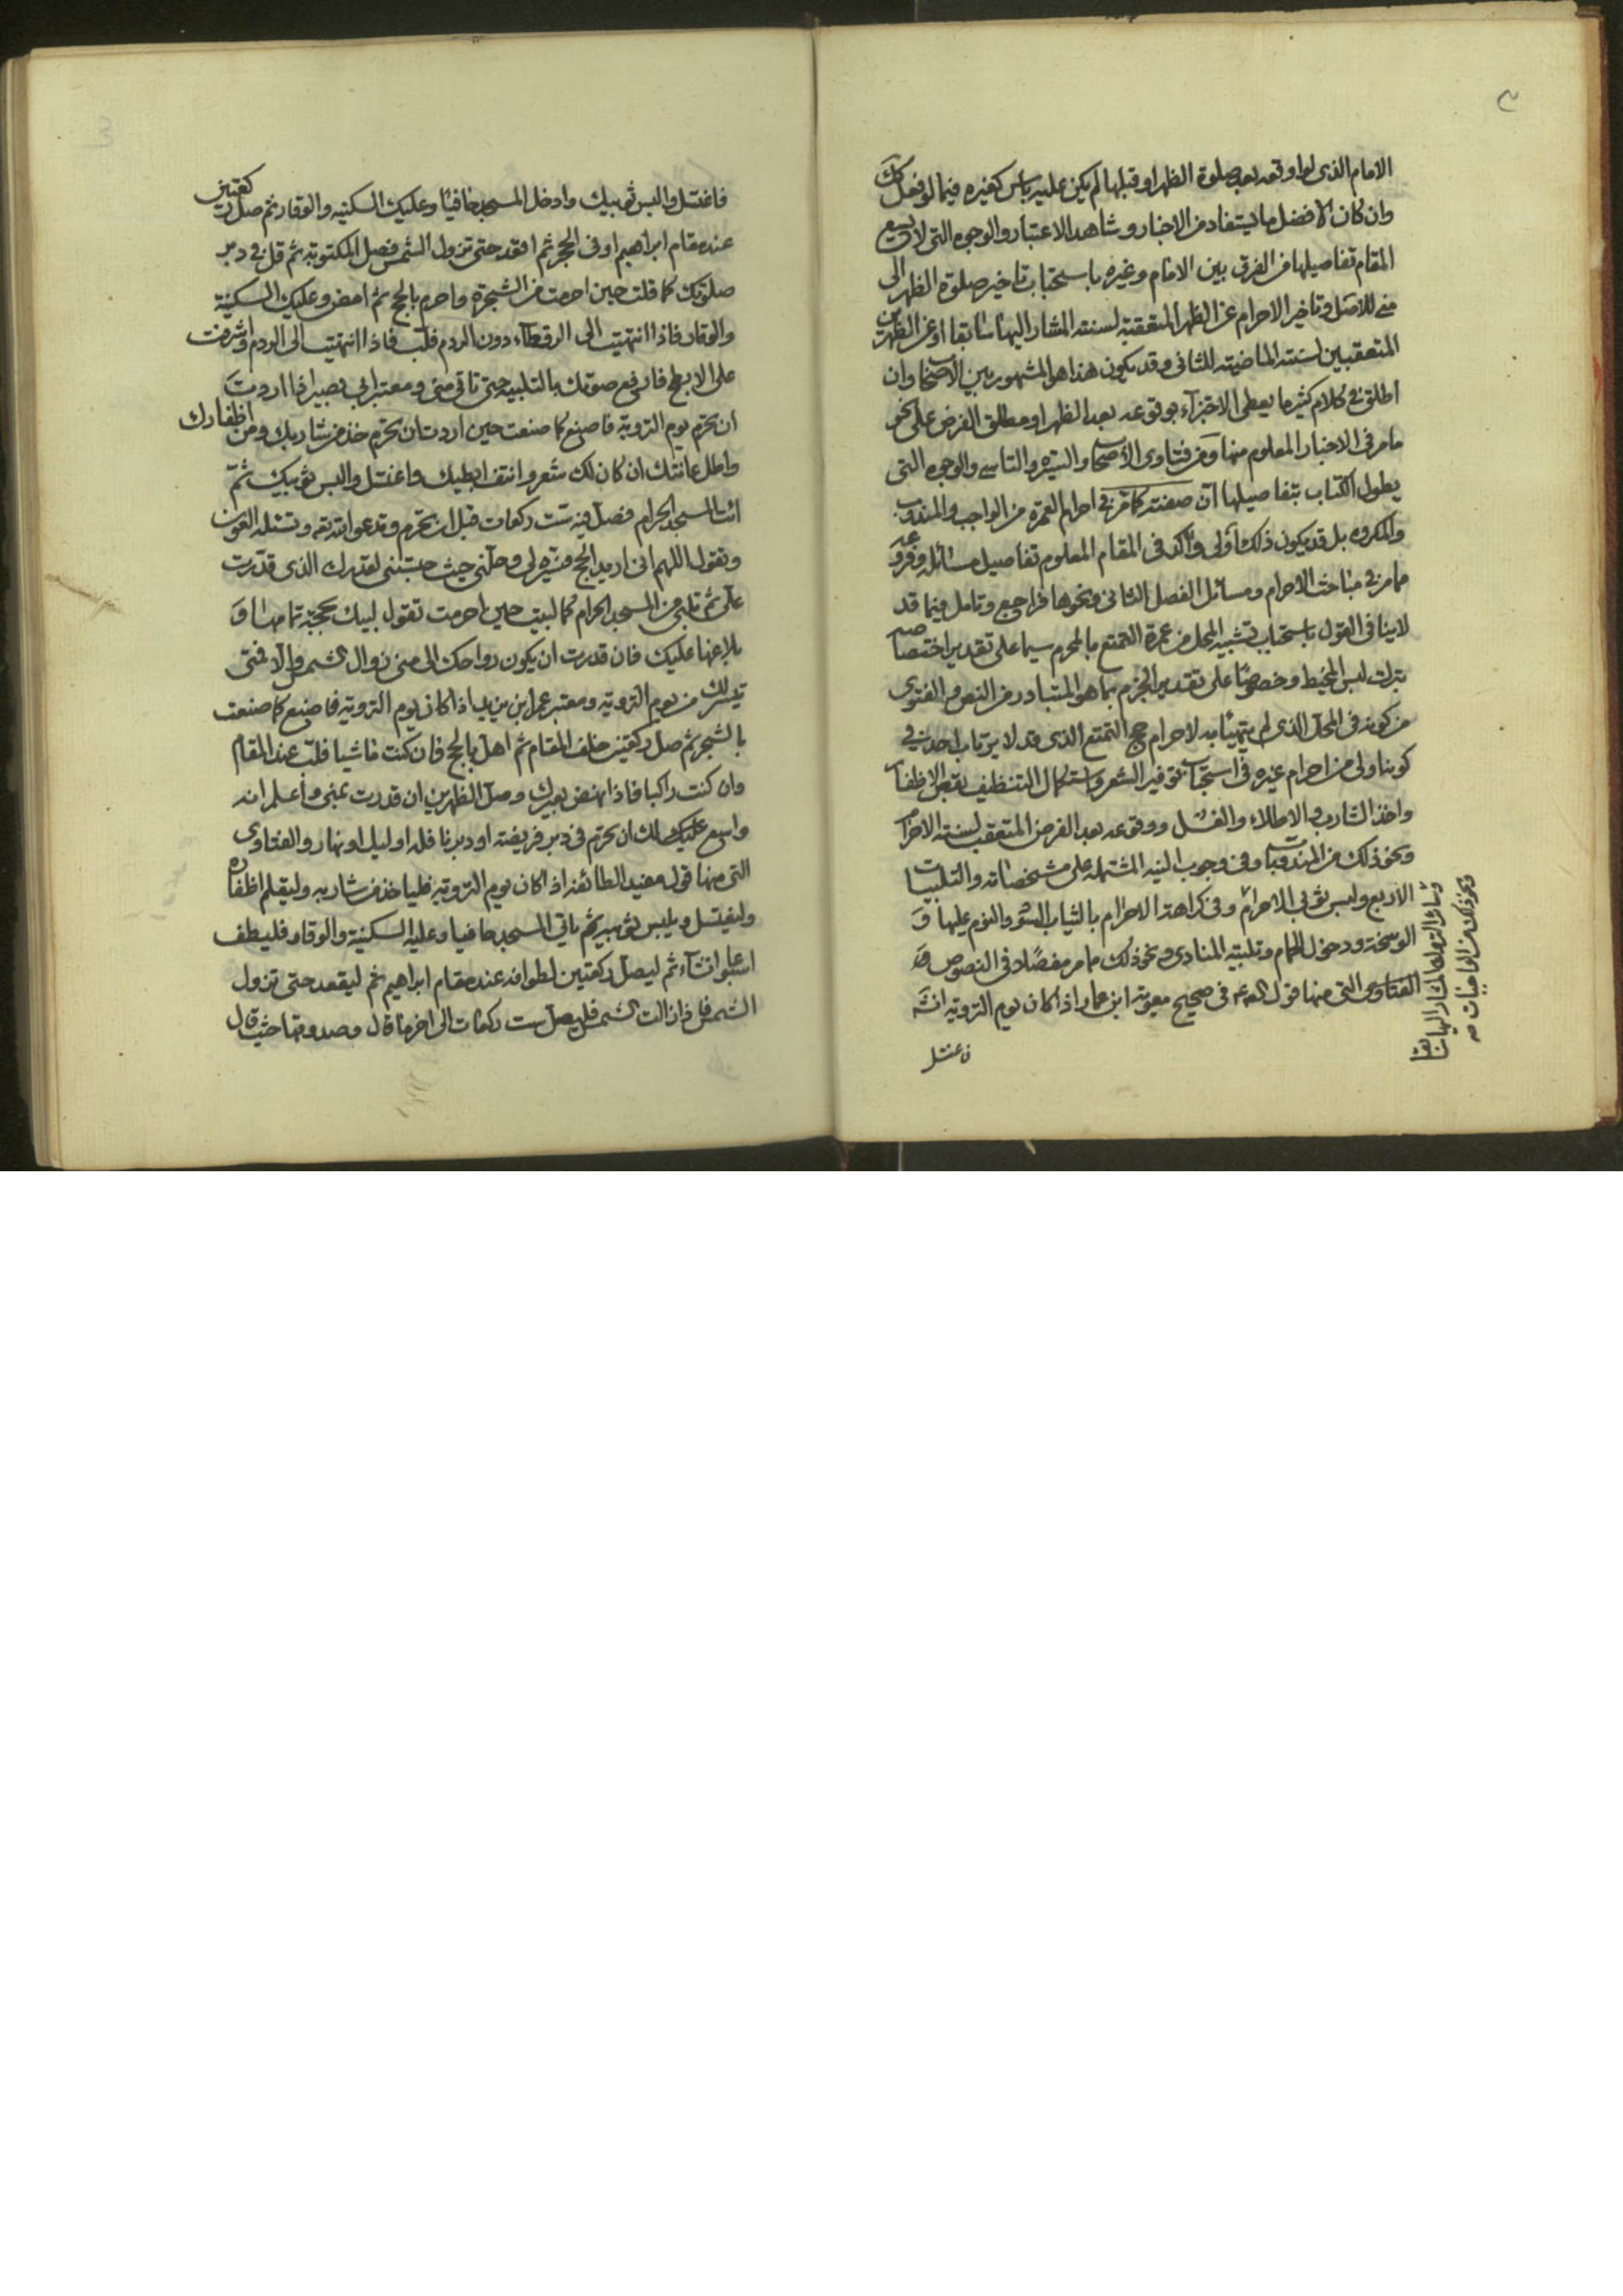 ٣
الامام الذى لو اوقعه بعد صلوة الظهر او قبلها لم يكن عليه باس كغيره فيما لو فعل كك
وان كان الافضل ما يستفاد من الاخبار وشاهد الاعتبار والوجوه التى لا يسع
المقام تفاصيلها من الفرق بين الامام وغيره باستحباب تاخير صلوة الظهر الى
منى للاول وتاخير الاحرام عن الظهر المتعقبة لسنته المشار اليها سابقا او عن الظهرين
المتعقبين لسنته الماضية للثانى وقد يكون هذا هو المشهور بين الاصحاب وان
اطلق فى كلام كثير ما يعطى الاجتزاء بوقوعه بعد الظهر او مطلق الفرض على نحو
ما مر فى الاخبار المعلوم منها ومن فتاوى الاصحاب والسيرة والتاسى والوجوه التى
يطول الكتاب بتفاصيلها ان صفته كما مر فى احرام العمرة من الواجب والمندوب
والمكروه بل قد يكون ذلك اولى واكد فى المقام المعلوم تفاصيل مسائله وفروعه
مما مر فى مباحث الاحرام ومسائل الفصل الثانى ونحوها فراجع وتامل فيما قد
لا ينافى القول باستحباب تشبيه المحل من عمرة التمتع بالمحرم سيما على تقدير اختصاصه
بترك لبس المخيط وخصوصًا على تقدير الجزم بما هو المتبادر من النص والفتوى
من كونه فى المحل الذى لم يتهيا به لاحرام حج التمتع الذى قد لا يرتاب احد فى
كونه اولى من احرام غيره فى استحباب توفير الشعر واستكمال التنظيف بقص الاظفار
واخذ الشارب والاطلاء والغسل ووقوعه بعد الفرض المتعقب لسنته الاحرام
ونحو ذلك من المندوبات وفى وجوب النية المشتملة على مشخصاته والتلبيات
الاربع ولبس ثوبى الاحرام وفى كراهة الاحرام بالثياب السود والنوم عليها و
الوسخة ودخول الحمام وتلبية المنادى ونحو ذلك مما مر مفصلا فى النصوص و
الفتاوى التى منها قوله ع فى صحيح معوية ابن عمار اذا كان يوم التروية انشاء
فاغتسل
وسائر التروك المشار اليها سابقا
ونحو ذلك من الواجبات صه
فاغتسل والبس ثوبيك وادخل المسجد حافيًا وعليك السكينة والوقار ثم صل ركعتين
عند مقام ابراهيم او فى الحجر ثم اقعد حتى تزول الشمس فصل المكتوبة ثم قل فى دبر
صلوتك كما قلت حين احرمت من الشجرة واحرم بالحج ثم امض وعليك السكينة
والوقار فاذا انتهيت الى الرقطاء دون الردم فلب فاذا انتهيت الى الردم واشرفت
على الابطح فارفع صوتك بالتلبية حتى تاتى منى ومعتبر ابى بصير اذا اردت
ان تحرم يوم التروية فاصنع كما صنعت حين اردت ان تحرم خذ من شاربك ومن اظفارك
واطل عانتك ان كان لك شعر وانتف ابطيك واغتسل والبس ثوبيك ثم
ائت المسجد الحرام فصل فيه ست ركعات قبل ان تحرم وتدعو الله تعه وتسئله العون
وتقول اللهم انى اريد الحج فيسره لى وحلنى حيث حبستنى لقدرك الذى قدرت
على ثم تلبى من المسجد الحرام كما لبيت حين احرمت تقول لبيك بحجة تمامها و
بلاغها عليك فان قدرت ان يكون رواحك الى منى زوال الشمس والا فمتى
تيسر لك من يوم التروية ومعتبر عمر ابن يزيد اذا كان يوم التروية فاصنع كما صنعت
بالشجرة ثم صل ركعتين خلف المقام ثم اهل بالحج فان كنت ماشيا فلب عند المقام
وان كنت راكبا فاذا نهض بعيرك وصل الظهرين ان قدرت بمنى واعلم انه
واسع عليك لك ان تحرم فى دبر فريضة او دبر نافلة او ليل او نهار والفتاوى
التى منها قول مفيد الطائفة اذا كان يوم التروية فلياخذ من شاربه وليقلم اظفاره
وليغتسل ويلبس ثوبيه ثم ياتى المسجد حافيا وعليه السكينة والوقار فليطف
اسبوعا انشاء ثم ليصل ركعتين لطوافه عند مقام ابراهيم ثم ليقعد حتى تزول
الشمس فاذا زالت الشمس فليصل ست ركعات الى اخر ما قال وصدوقها حيث قال